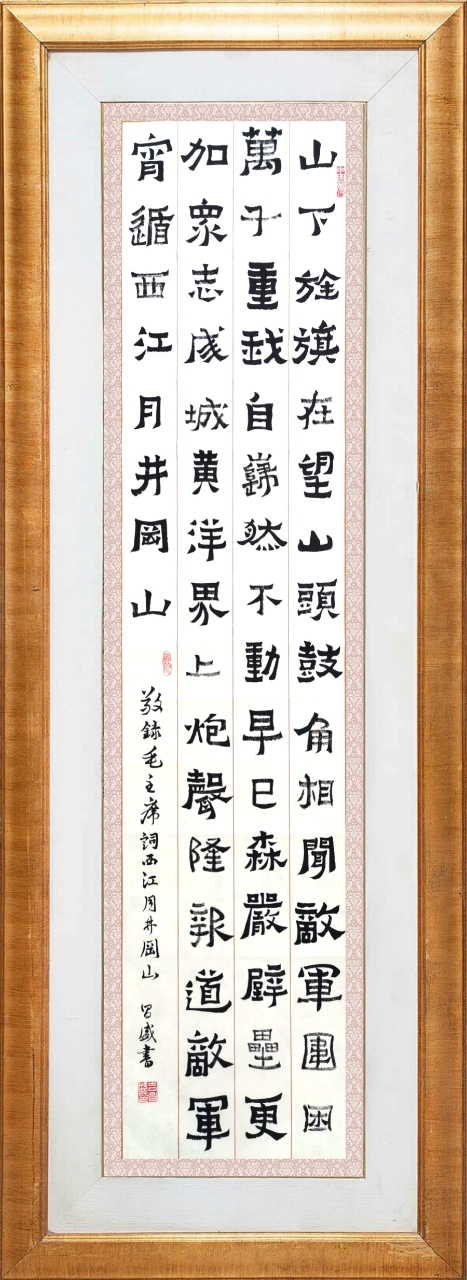 山下旌旗在望山頭鼓角相聞敵軍圍困
萬千重我自巋然不動早已森嚴壁壘更
加眾志成城黃洋界上炮聲隆報道敵軍
宵遁西江月井岡山
敬錄毛主席詞西江月井岡山 盛書